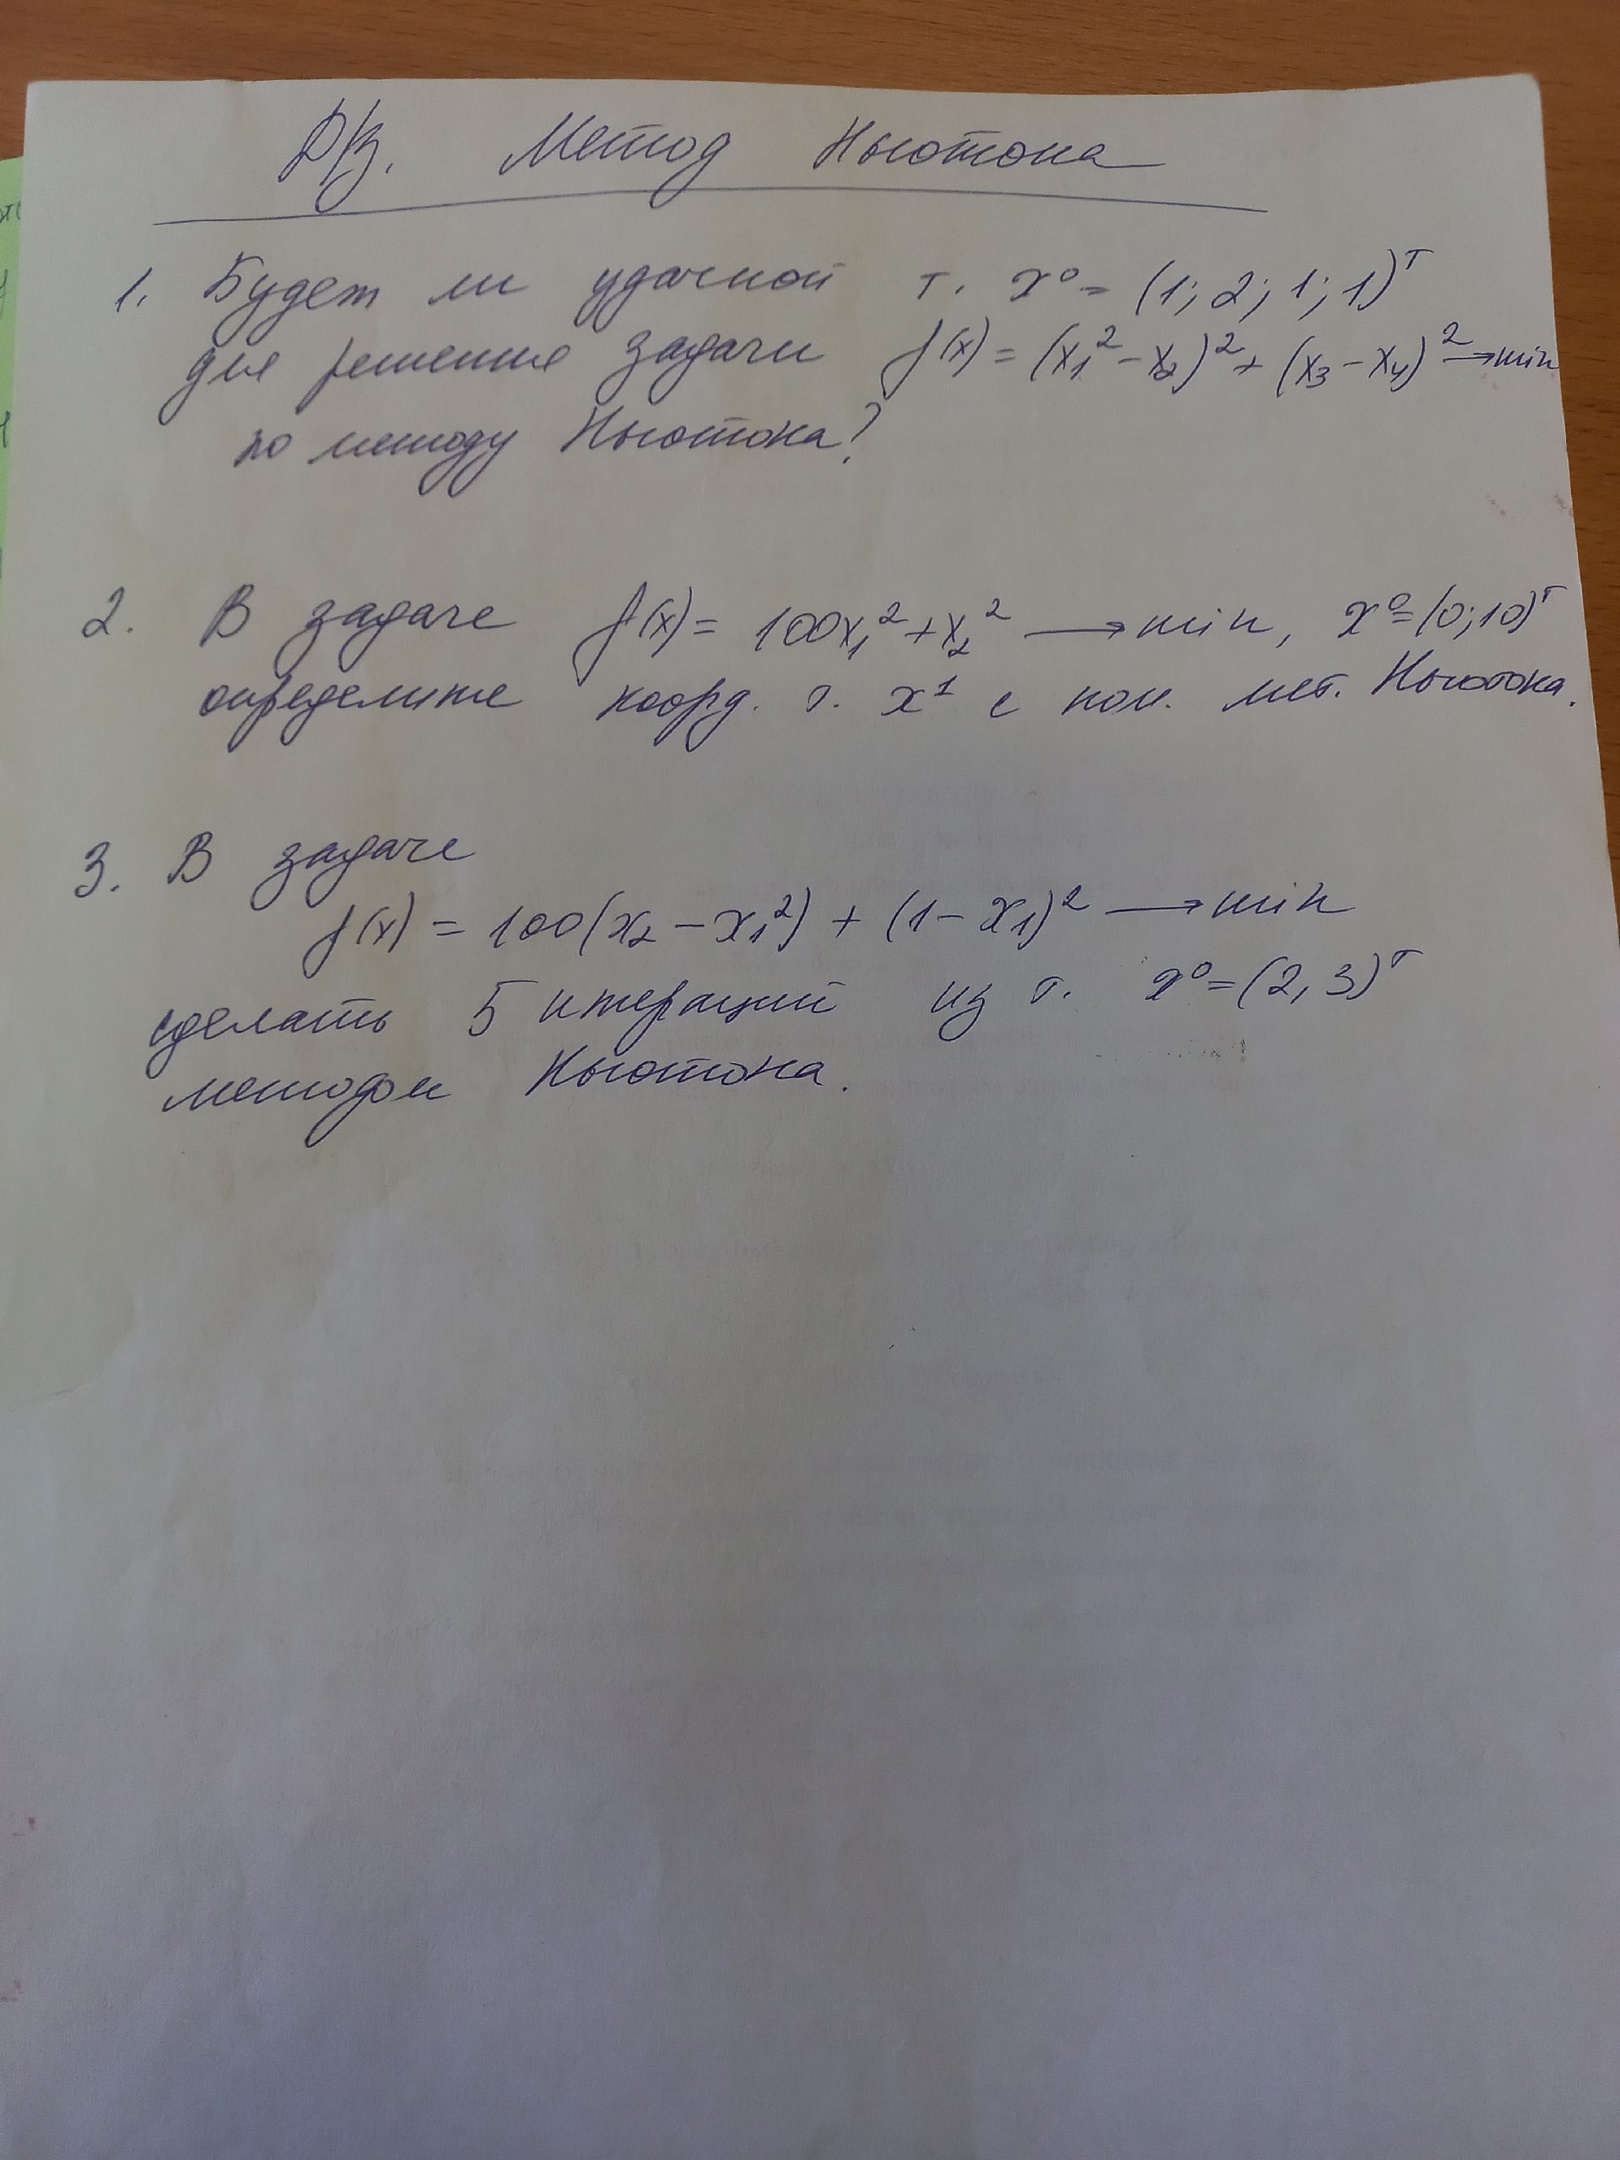 Д/З. Метод Ньютона
1. Будет ли удачной т. x⁰ = (1; 2; 1; 1)ᵀ
для решения задачи f(x) = (x₁² - x₂)² + (x₃ - x₄)² → min
по методу Ньютона?
2. В задаче f(x) = 100x₁² + x₂² → min, x⁰ = (0; 10)ᵀ
определите коорд. т. x¹ с пом. мет. Ньютона.
3. В задаче
f(x) = 100(x₂ - x₁²) + (1 - x₁)² → min
сделать 5 итераций из т. x⁰ = (2, 3)ᵀ
методом Ньютона.